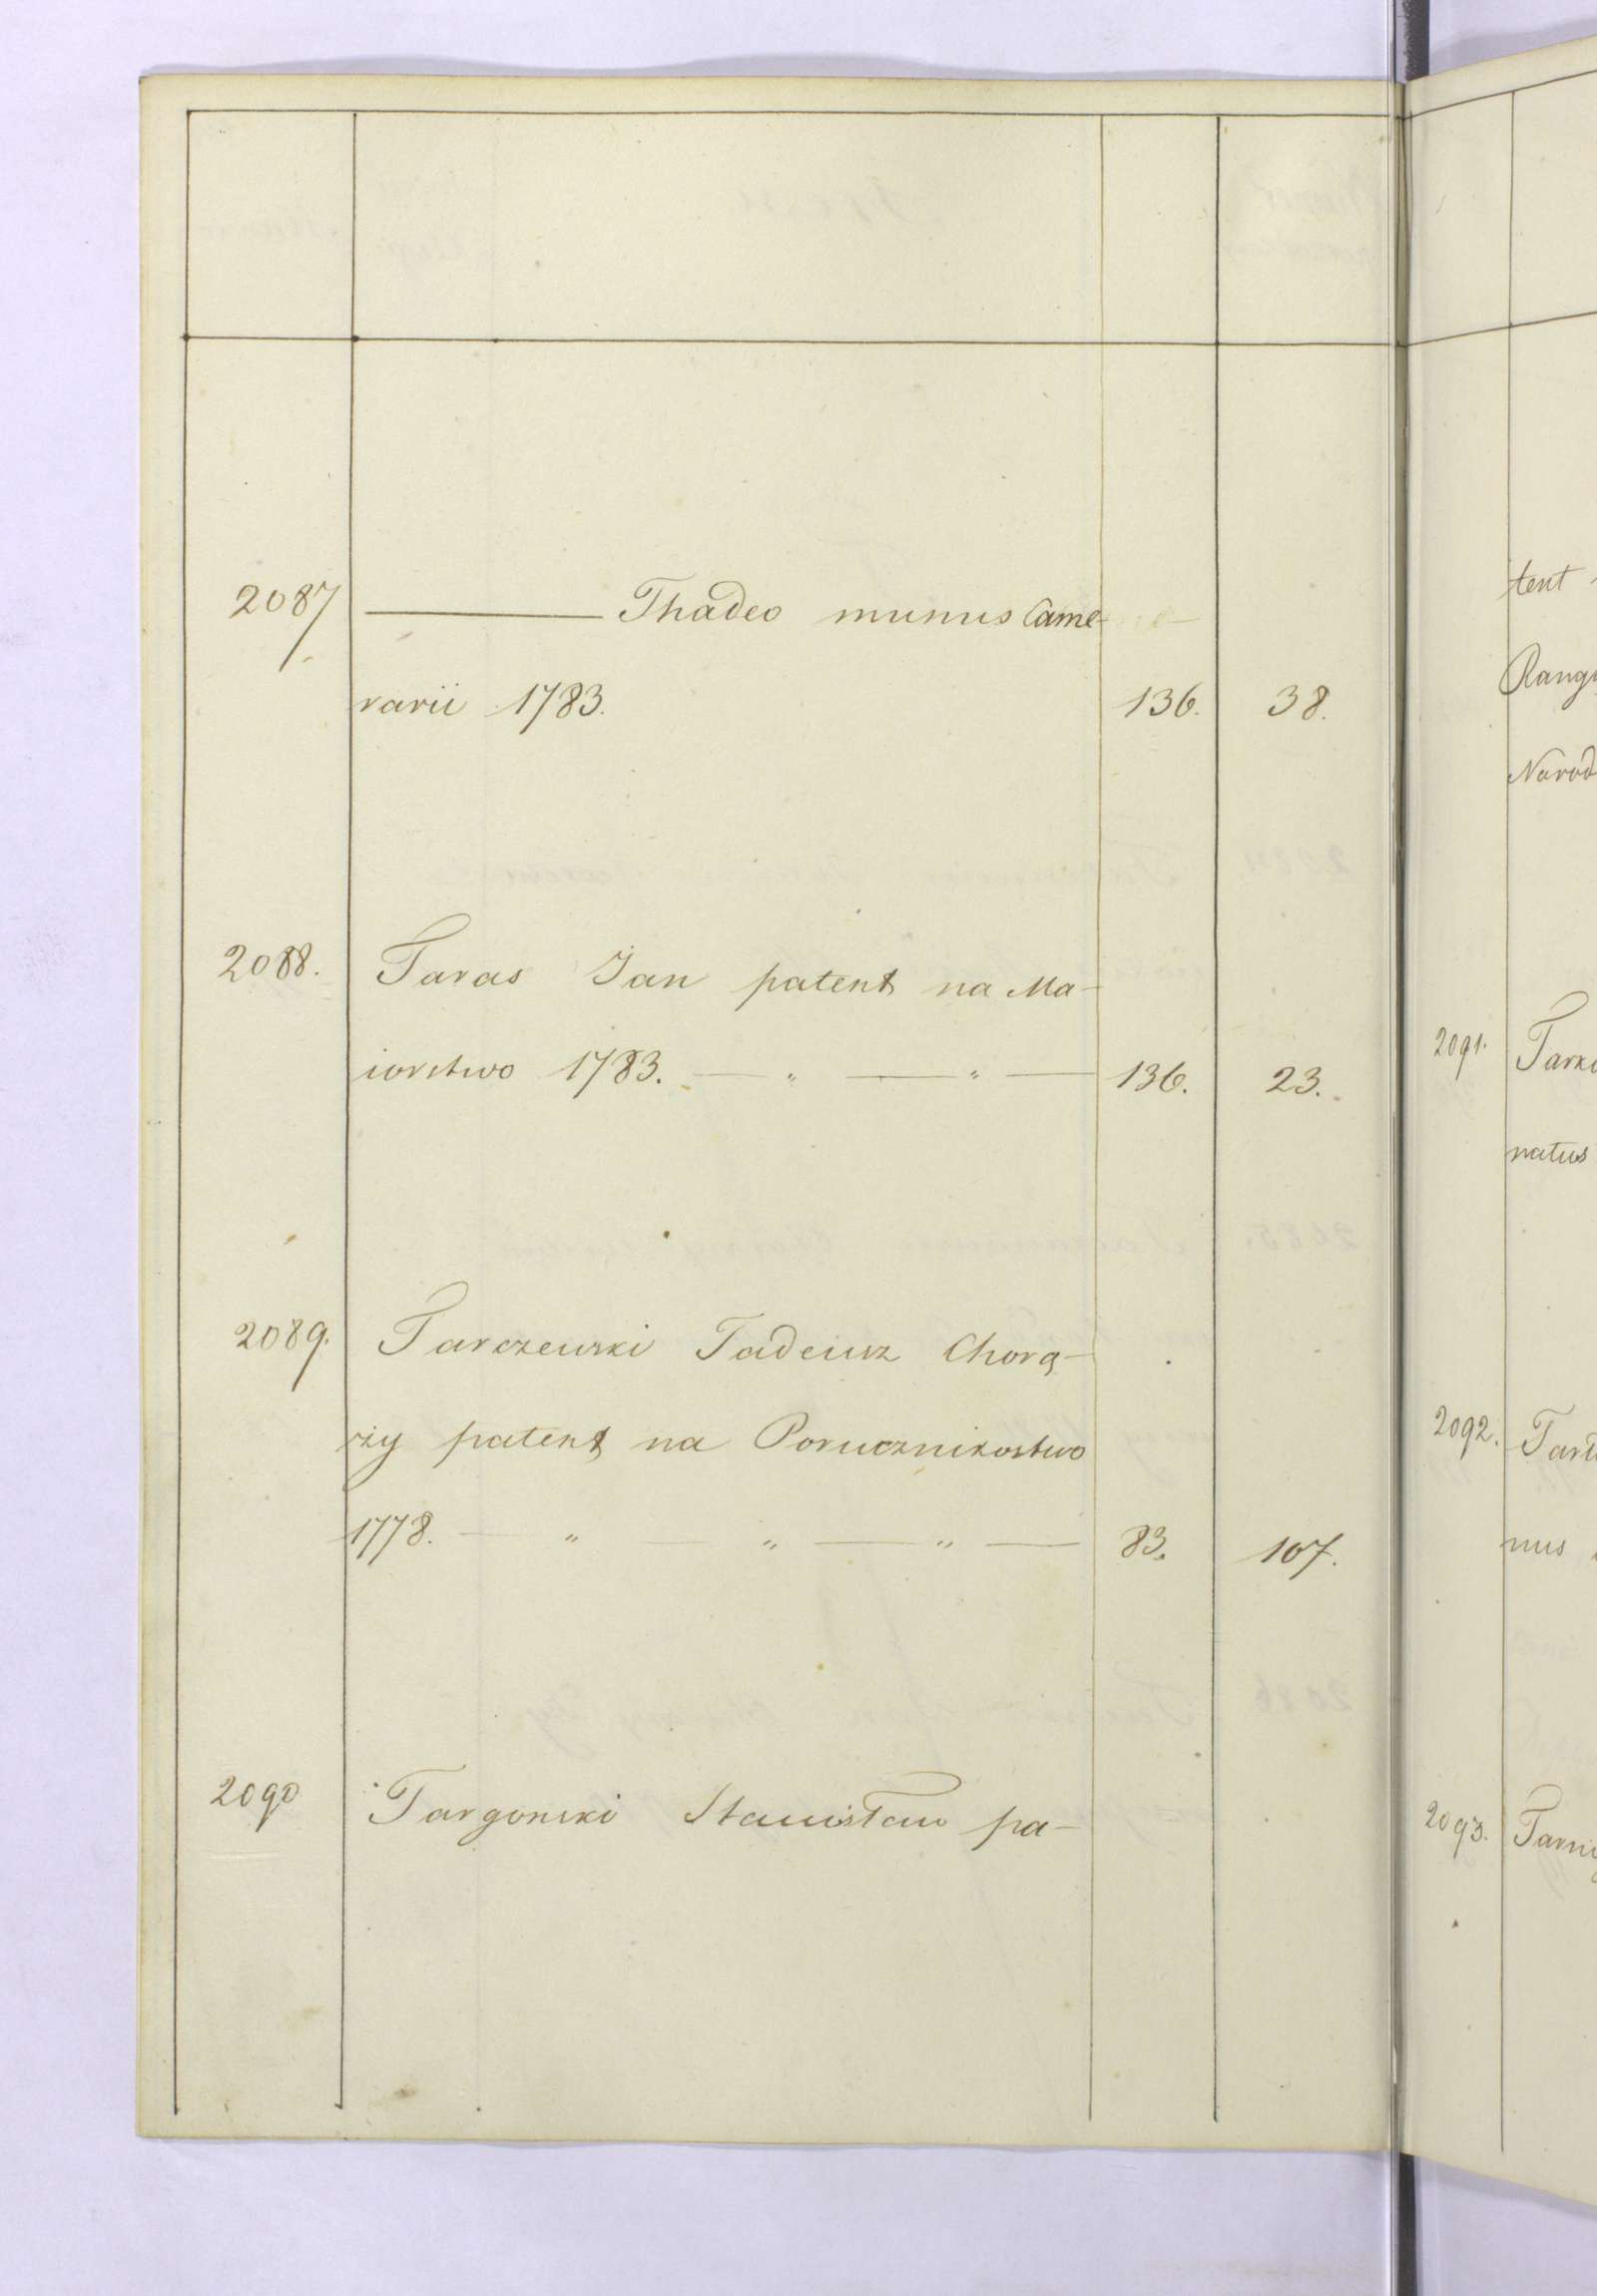 2087 ——— Thadeo munus Came-
rarii 1783. 136. 38.
2088. Taras Jan patent na Ma-
iorstwo 1783. — „ — „ — 136. 23.
2089. Tarczewski Tadeusz Chorą-
ży patent na Porucznikostwo
1778. — „ — „ — „ — 83. 107.
2090 Targonski Stanisław pa-
tent
Rang
Narod
2091. Tark
natus
2092. Tar
nus
2093. Tarn